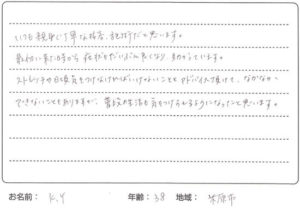 いつも親身に丁寧な接客、説明だと思います。
最初に来た時から症状もだいぶん良くなり助かっています。
ストレッチや日頃気をつけなければいけないことも、アドバイス頂けて、なかなか
できないこともありますが、普段の生活も気をつけられるようになったと思います。
お名前: K.Y 年齢: 38 地域: 米原市